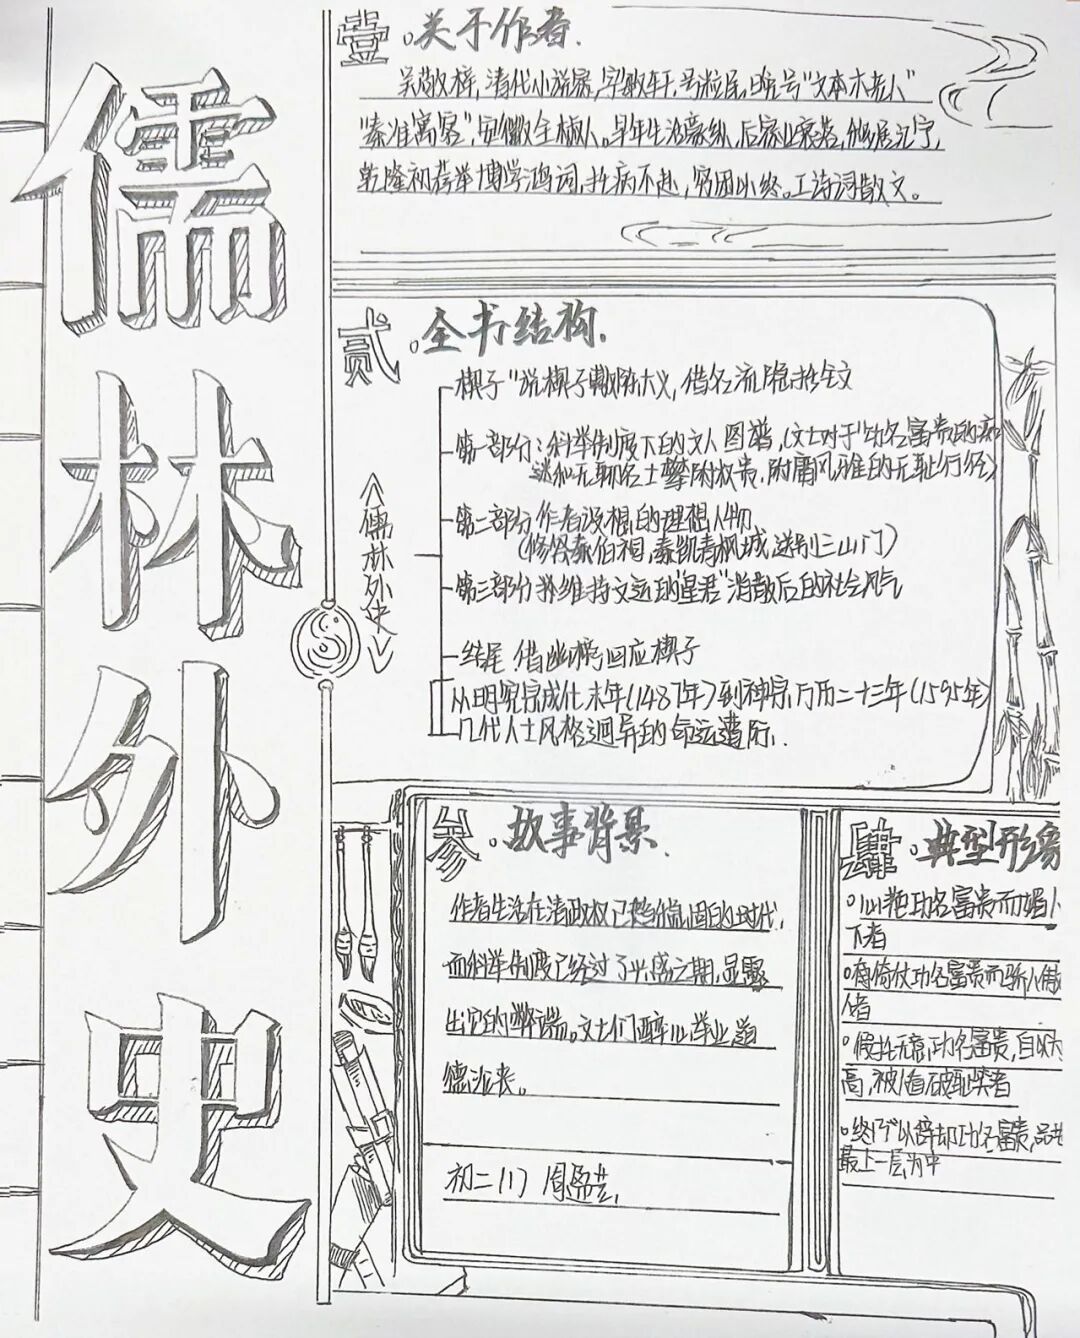 儒林外史
壹。关于作者.
吴敬梓,清代小说家,字敏轩,号粒民,晚号"文木老人"
"秦淮寓客",安徽全椒人。早年生活豪纵,后家业衰落,移居江宁,
乾隆初荐举博学鸿词,托病不赴,穷困以终。工诗词散文。
贰。全书结构.
<儒林外史>
楔子"说楔子敷陈大义,借名流隐括全文
第一部分:科举制度下的文人图谱,(文士对于"功名富贵的痴
迷和无聊名士攀附权贵.附庸风雅的无耻行径)
第二部分 作者设想的理想人物
(修祭泰伯祠,泰凯青枫城,送别三山门)
第三部分 维持文运的"星君"消散后的社会风气
结尾 借幽榜回应楔子
从明宪宗成化末年(1487年)到神宗万历二十三年(1595年)
几代人士风格迥异的命运遭际.
叁。故事背景.
作者生活在清政权已趋稳固的时代,
而科举制度已经过了兴盛之期,显露
出它的弊端。文士们醉心举业,道
德沦丧。
初二(1)
肆。典型形象
。心艳功名富贵而媚人
下者
。有倚仗功名富贵而骄人傲
者
。假托无意功名富贵,自以为
高,被人看破耻笑者
。终乃以辞却功名富贵,品
最上一层,为中